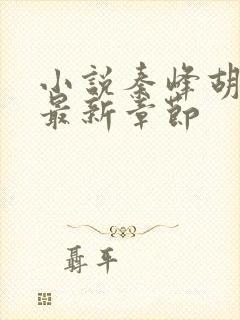 小説秦峰胡
最新章節
聶平